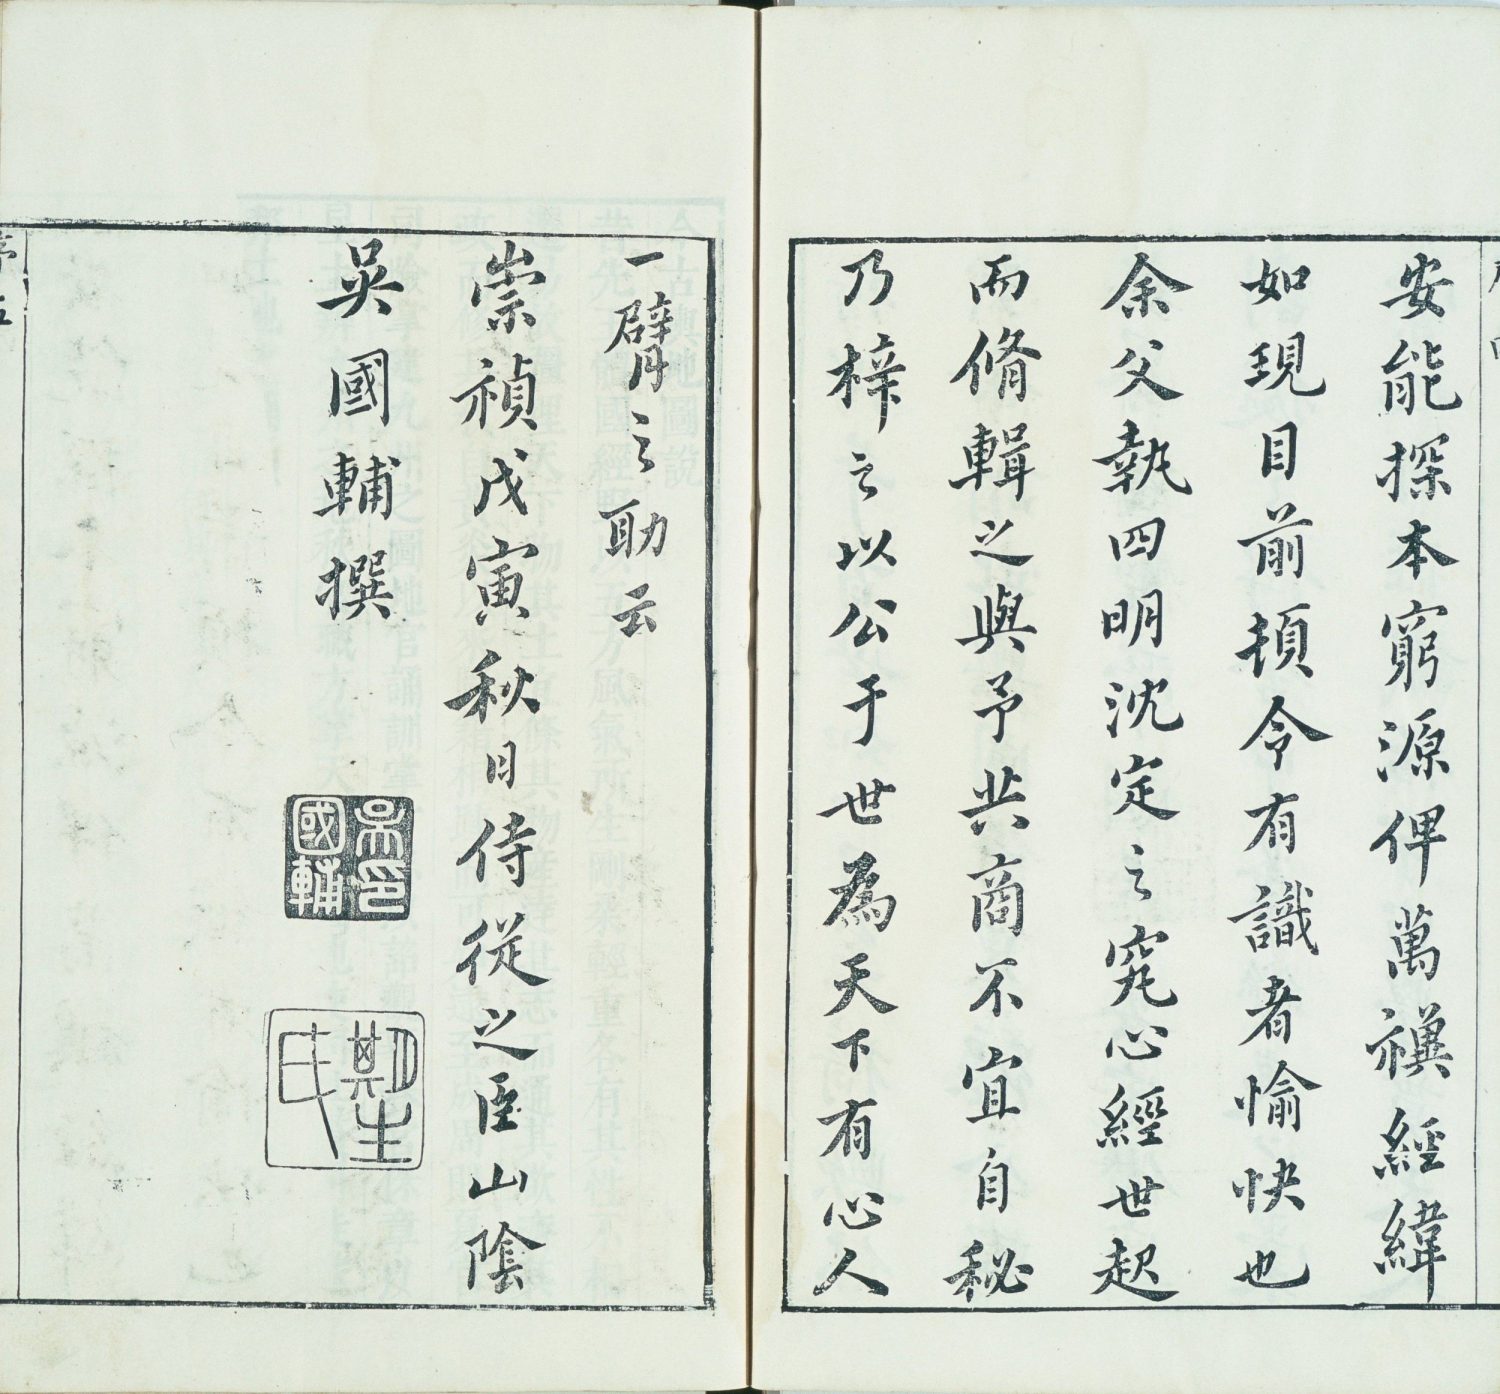 安能探本窮源俾萬禩經緯
如現目前頓令有識者愉快也
余父執四明沈定之究心經世起
而脩輯之與予共商不宜自秘
乃梓之以公于世為天下有心人
一臂之助云
崇禎戊寅秋日侍從之臣山陰
吳國輔撰
吳國輔印
期生氏